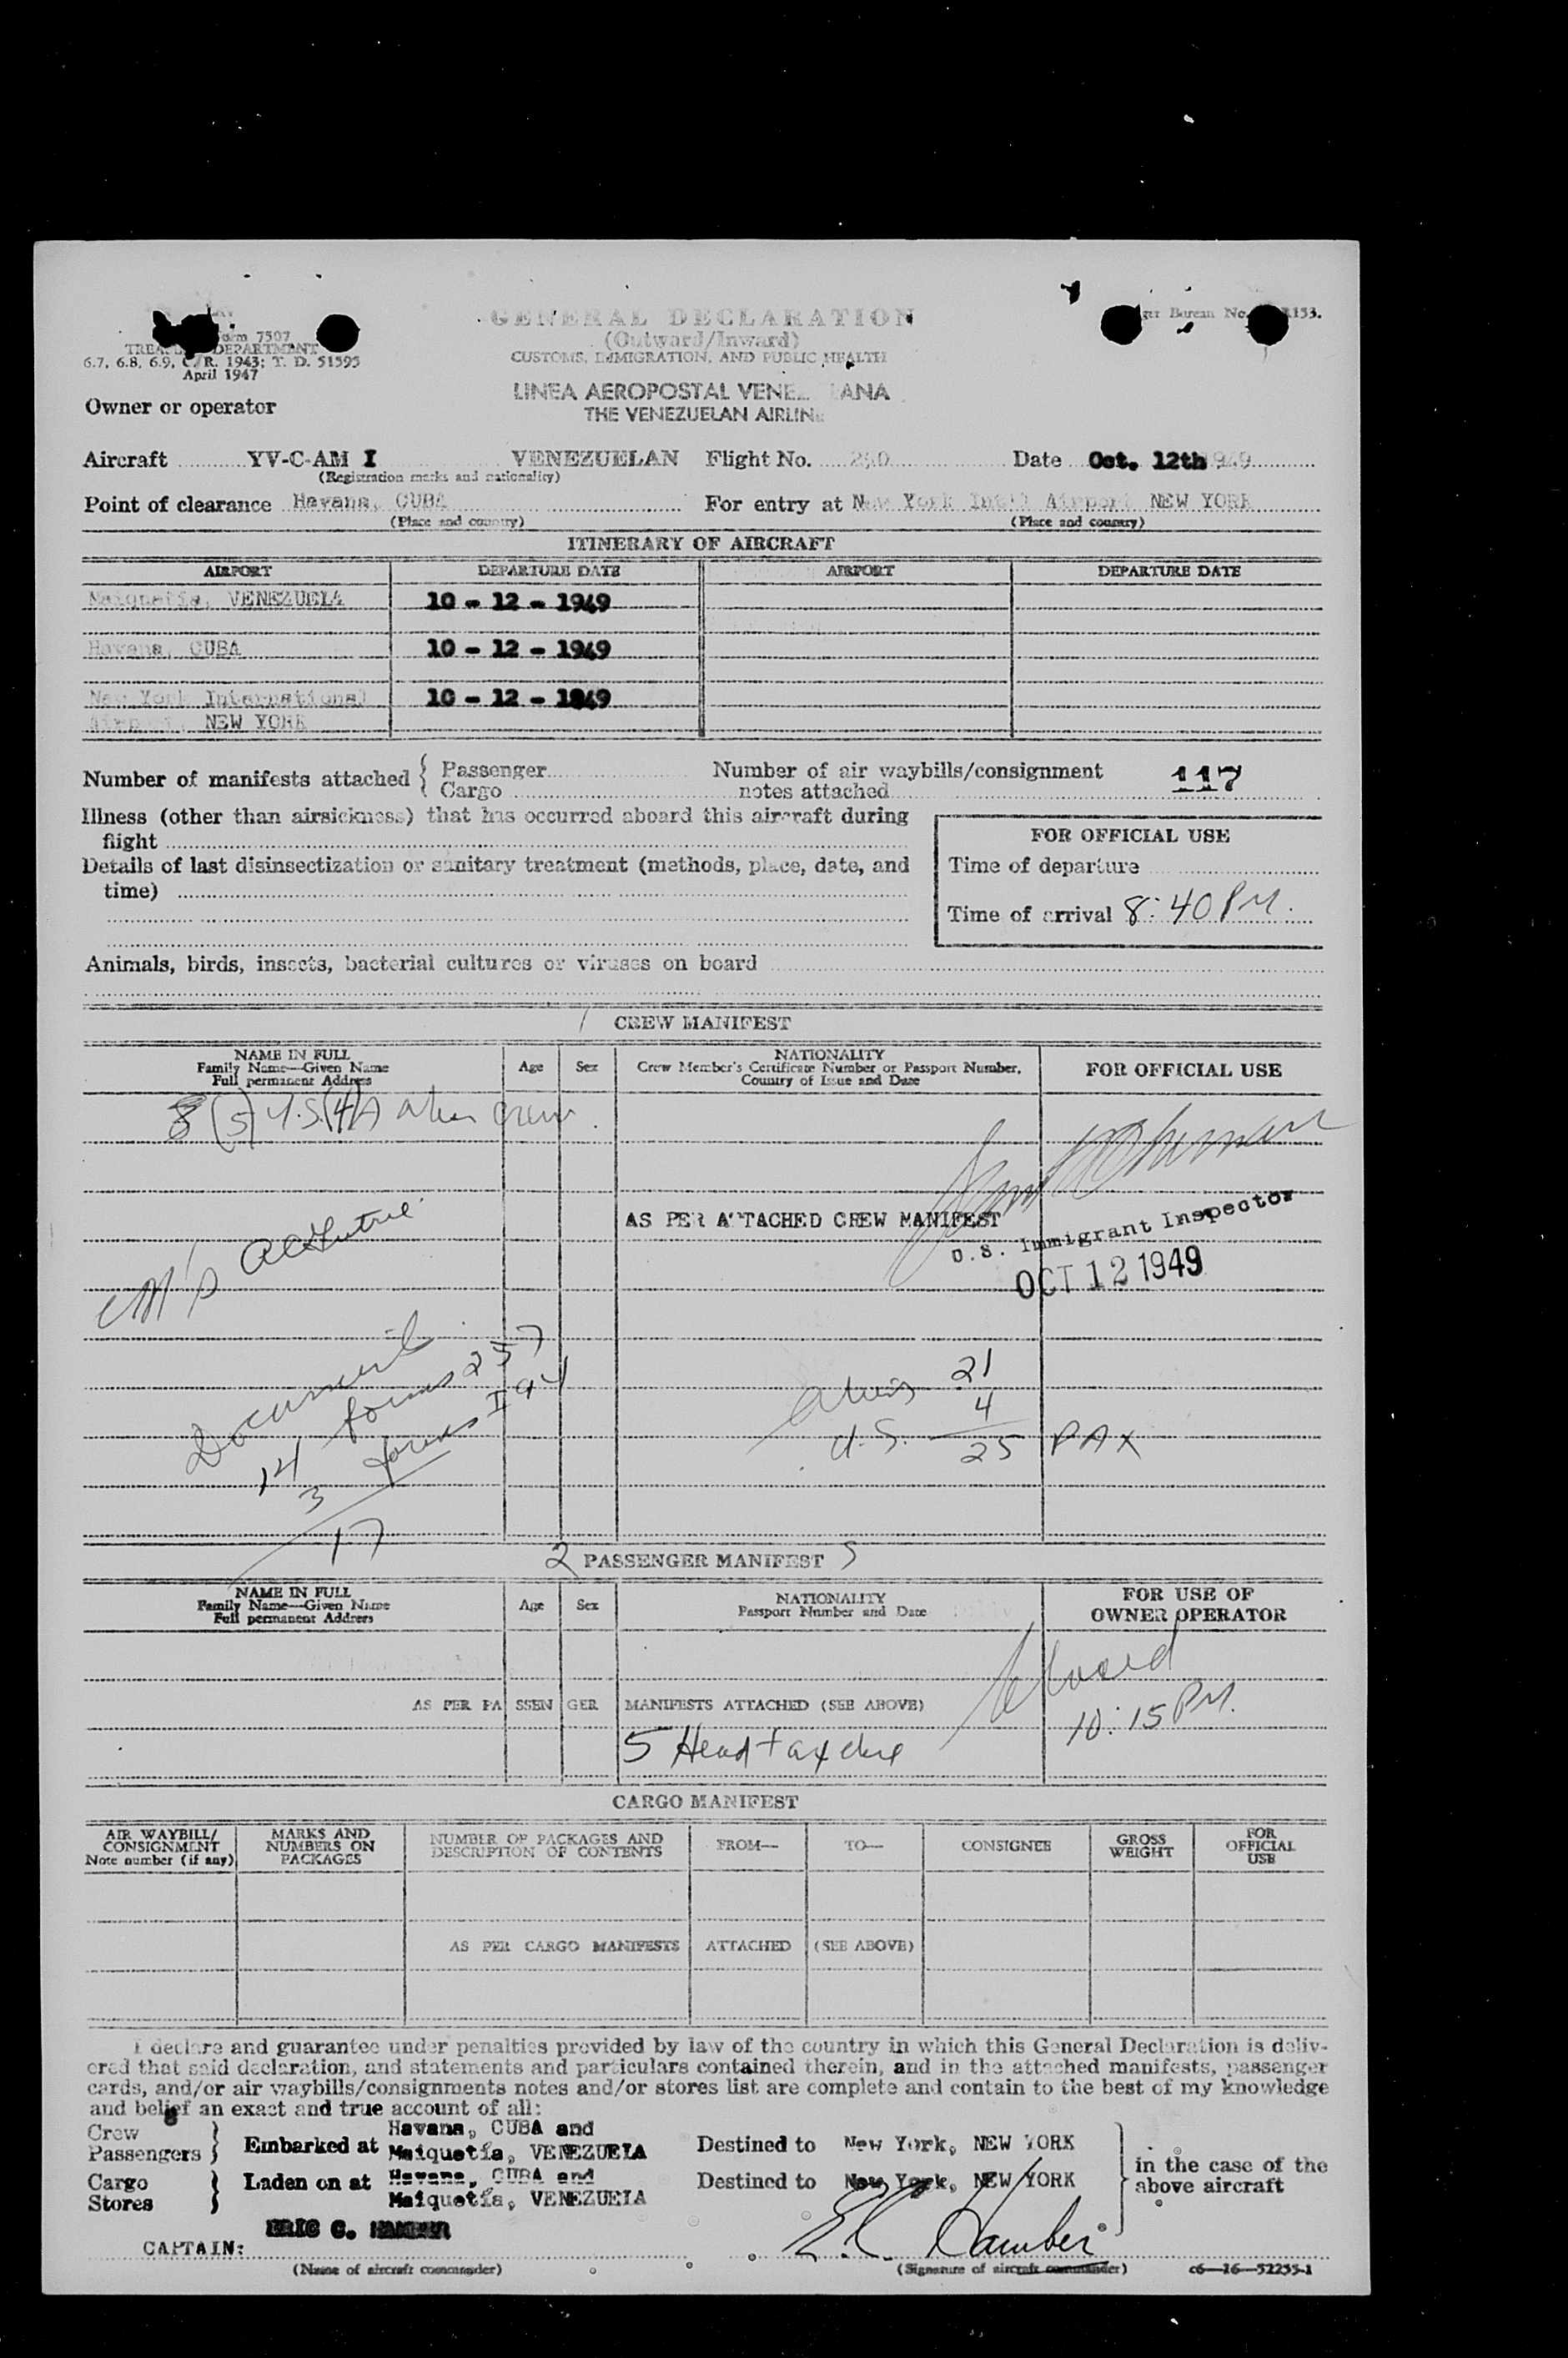 GENERAL DECLARATION
(Outward/Inward)
CUSTOMS, IMMIGRATION, AND PUBLIC HEALTH
Form 7507
TREASURY DEPARTMENT
6.7, 6.8, 6.9, C. R. 1943; T. D. 51595
April 1947
Bureau No. 153.
LINEA AEROPOSTAL VENE ANA
THE VENEZUELAN AIRLINE
Owner or operator
Aircraft YV-C-AM I VENEZUELAN Flight No. 250 Date Oct. 12th 1949
(Registration marks and nationality)
Point of clearance Havana, CUBA For entry at New York Int'l Airport NEW YORK
(Place and country) (Place and country)
ITINERARY OF AIRCRAFT
AIRPORT DEPARTURE DATE AIRPORT DEPARTURE DATE
Maiquetia, VENEZUELA 10 - 12 - 1949
Havana, CUBA 10 - 12 - 1949
New York International 10 - 12 - 1949
Airport, NEW YORK
Number of manifests attached { Passenger Number of air waybills/consignment 117
Cargo notes attached
Illness (other than airsickness) that has occurred aboard this aircraft during
flight
FOR OFFICIAL USE
Details of last disinsectization or sanitary treatment (methods, place, date, and
time)
Time of departure
Time of arrival 8:40 PM.
Animals, birds, insects, bacterial cultures or viruses on board
1 CREW MANIFEST
NAME IN FULL
Family Name—Given Name
Full permanent Address
Age Sex
NATIONALITY
Crew Member's Certificate Number or Passport Number,
Country of Issue and Date
FOR OFFICIAL USE
8 (5) U.S. (4) A alien crew.
AS PER ATTACHED CREW MANIFEST
U.S. Immigrant Inspector
OCT 12 1949
Documents
14 forms 257
3 forms I 94
17
Aliens 21
U.S. 4
25 PAX
2 PASSENGER MANIFEST 5
NAME IN FULL
Family Name—Given Name
Full permanent Address
Age Sex
NATIONALITY
Passport Number and Date
FOR USE OF
OWNER OPERATOR
AS PER PA SSEN GER MANIFESTS ATTACHED (SEE ABOVE)
10:15 PM.
5 Head tax due
CARGO MANIFEST
AIR WAYBILL/
CONSIGNMENT
Note number (if any)
MARKS AND
NUMBERS ON
PACKAGES
NUMBER OF PACKAGES AND
DESCRIPTION OF CONTENTS
FROM— TO— CONSIGNEE
GROSS
WEIGHT
FOR
OFFICIAL
USE
AS PER CARGO MANIFESTS ATTACHED (SEE ABOVE)
I declare and guarantee under penalties provided by law of the country in which this General Declaration is deliv-
ered that said declaration, and statements and particulars contained therein, and in the attached manifests, passenger
cards, and/or air waybills/consignments notes and/or stores list are complete and contain to the best of my knowledge
and belief an exact and true account of all:
Crew
Passengers } Embarked at Havana, CUBA and
Maiquetía, VENEZUELA Destined to New York, NEW YORK
Cargo
Stores } Laden on at Havana, CUBA and
Maiquetía, VENEZUELA Destined to New York, NEW YORK
in the case of the
above aircraft
CAPTAIN: ERIC C. HAMBER E.C. Hamber
(Name of aircraft commander) (Signature of aircraft commander) c6—16—52255-1